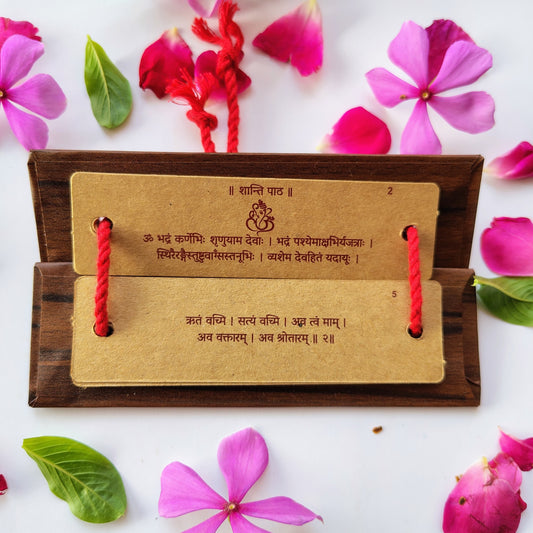 ॥ शान्ति पाठ ॥
2
ॐ भद्रं कर्णेभिः शृणुयाम देवाः । भद्रं पश्येमाक्षभिर्यजत्राः ।
स्थिरैरङ्गैस्तुष्टुवाꣳसस्तनूभिः । व्यशेम देवहितं यदायूः ।
5
ऋतं वच्मि । सत्यं वच्मि । अव त्वं माम् ।
अव वक्तारम् । अव श्रोतारम् ॥ २॥